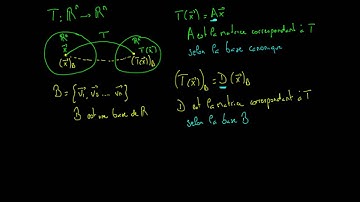 T: ℝⁿ → ℝⁿ
ℝⁿ T ℝⁿ
x⃗ T(x⃗)
(x⃗)_B (T(x⃗))_B
B = {v⃗₁, v⃗₂ ... v⃗ₙ}
B est une base de R
T(x⃗) = Ax⃗
A est la matrice correspondant à T
selon la base canonique
(T(x⃗))_B = D (x⃗)_B
D est la matrice correspondant à T
selon la base B